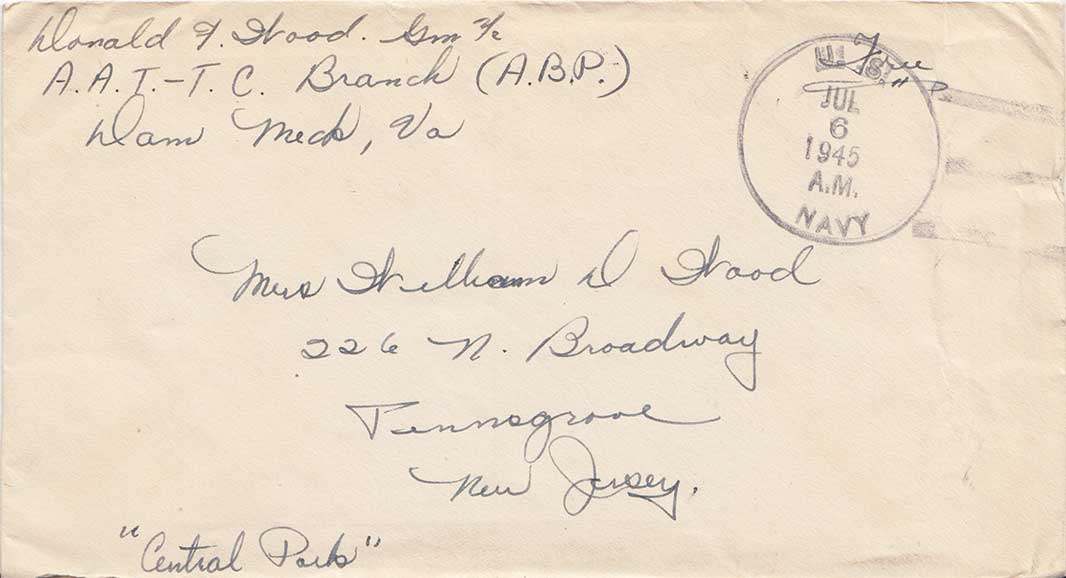 Donald F. Wood. Gm 2/c
A.A.T.-T.C. Branch (A.B.P.)
Dam Neck, Va
Free
U.S.
JUL
6
1945
A.M.
NAVY
Mrs William D Wood
226 N. Broadway
Pennsgrove
New Jersey.
"Central Park"